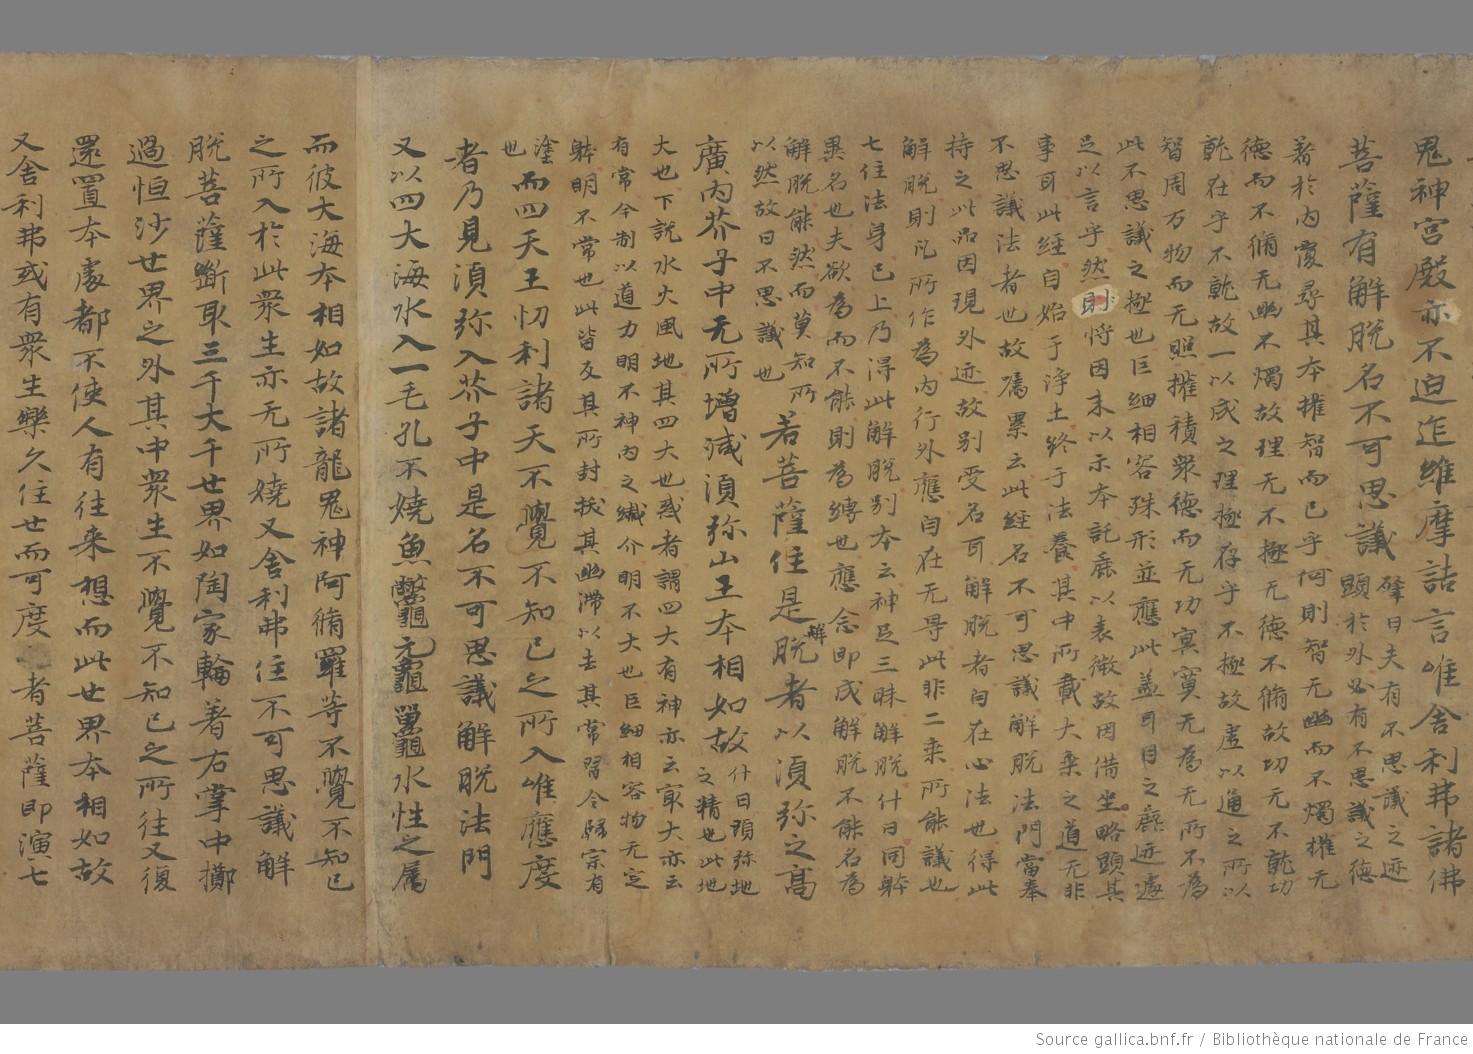 鬼神宮殿亦不迫迮維摩詰言唯舍利弗諸佛
菩薩有解脫名不可思議
肇曰夫有不思議之迹
顯於外必有不思議之德
著於內覆尋其本權智而已乎何則智无幽而不燭權无
德而不脩无幽不燭故理无不極无德不脩故功无不就功
就在乎不就故一以成之理極存乎不極故虛以通之所以
智周万物而无照權積衆德而无功冥寞无為无所不為
此不思議之極也巨細相容殊形並應此盖耳目之麁迹遽
足以言乎然則將因末以示本託麁以表微故因借坐略顯其
事耳此經自始于淨土終于法養其中所載大乘之道无非
不思議法者也故属累云此經名不可思議解脫法門當奉
持之此品因現外迹故別受名耳解脫者自在心法也得此
解脫則凡所作為內行外應自在无㝵此非二乘所能議也
七住法身已上乃得此解脫別本云神足三昧解脫什曰同躰
異名也夫欲為而不能則為縛也應念即成解脫不能名為
解脫能然而莫知所
以然故曰不思議也
若菩薩住是解脫者以湏弥之高
廣內芥子中无所增減湏弥山王本相如故
什曰湏弥地
之精也此地
大也下說水火風地其四大也或者謂四大有神亦云㝡大亦云
有常今制以道力明不神內之纎介明不大也巨細相容物无定
躰明不常也此皆反其所封拔其幽滯以去其常習令歸宗有
塗
也
而四天王忉利諸天不覺不知已之所入唯應度
者乃見湏弥入芥子中是名不可思議解脫法門
又以四大海水入一毛孔不燒魚鱉黿鼉水性之属
而彼大海本相如故諸龍鬼神阿脩羅等不覺不知已
之所入於此衆生亦无所燒又舍利弗住不可思議解
脫菩薩斷取三千大千世界如陶家輪著右掌中擲
過恒沙世界之外其中衆生不覺不知已之所往又復
還置本處都不使人有往来想而此世界本相如故
又舍利弗或有衆生樂久住世而可度者菩薩即演七
Source gallica.bnf.fr / Bibliothèque nationale de France